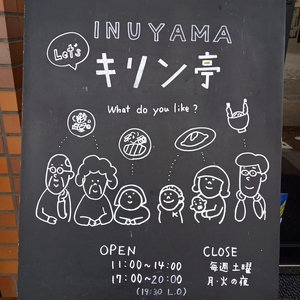 INUYAMA
Let's
キリン亭
What do you like?
OPEN
11:00~14:00
17:00~20:00
(19:30 L.O.)
CLOSE
毎週土曜
月・火の夜